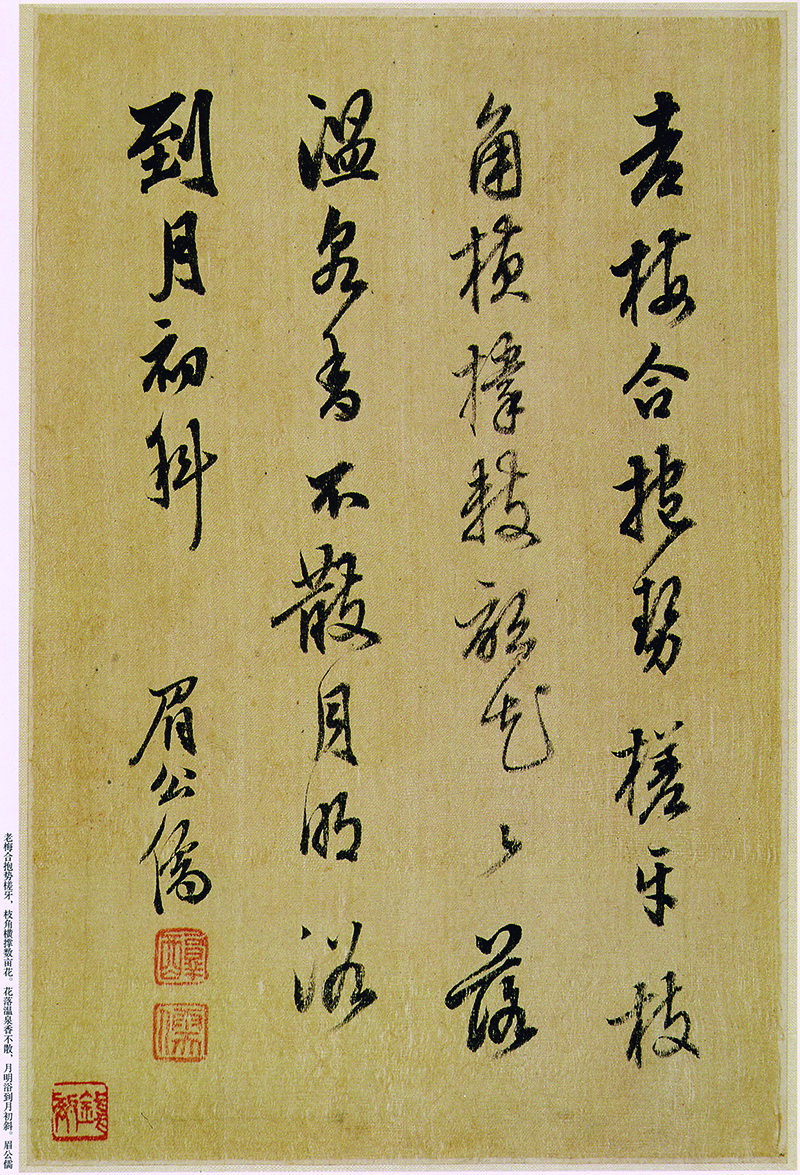 老梅合抱勢槎牙枝
角橫撐數畝花々落
溫泉香不散月明浴
到月初斜 眉公儒
醇
儒
老梅合抱势槎牙，枝角横撑数亩花。花落温泉香不散，月明浴到月初斜。 眉公儒